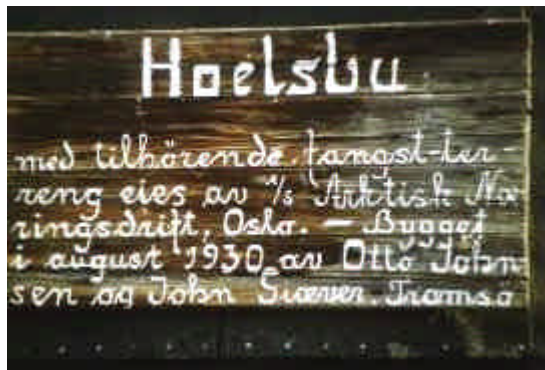 Hoelsbu
med tilhörende fangst-ter-
reng eies av A/S Arktisk Næ
ringsdrift, Oslo. – Bygget
i august 1930 av Otto John-
sen og John Giæver. Tromsø